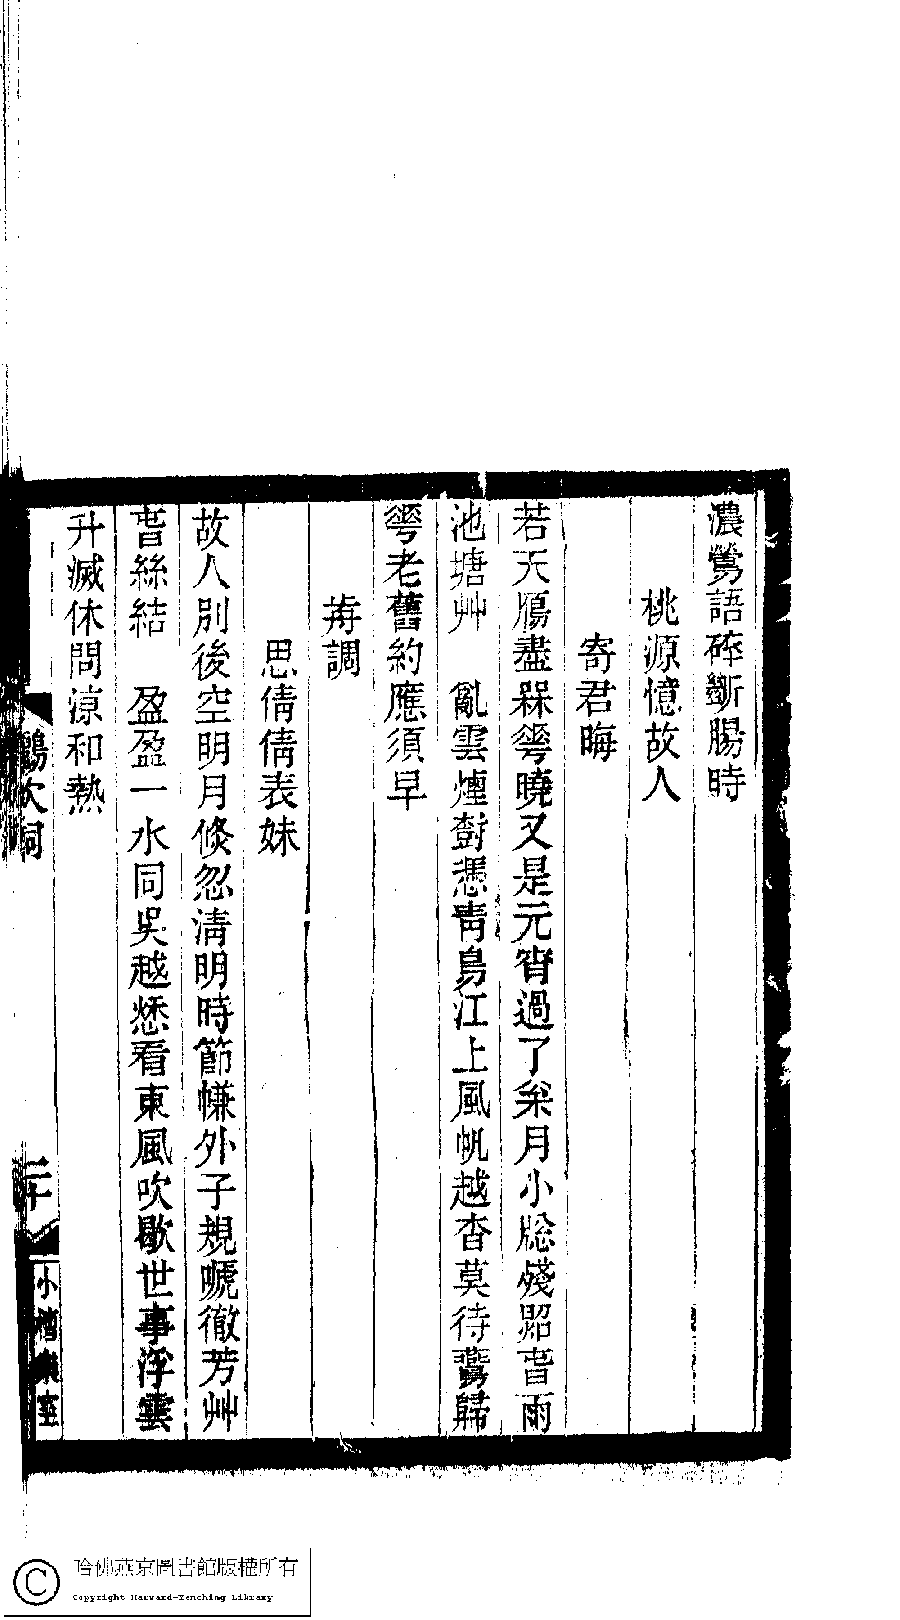 濃鶯語碎斷腸時
桃源憶故人
寄君晦
若天鴈盡槑蕚曉又是元宵過了㭉月小牕殘照旾雨
池塘艸　亂雲煙樹憑青鳥江上風帆越杳莫待鶯歸
蕚老舊約應須早
再調
思倩倩表妹
故人別後空明月倏忽淸明時節㡘外子規嗁徹芳艸
旾絲結　盈盈一水同吳越愁看東風吹歇世事浮雲
升滅休問涼和熱
鸝吹詞
二十
小檀欒室
哈佛燕京圖書館版權所有
Copyright Harvard-Yenching Library